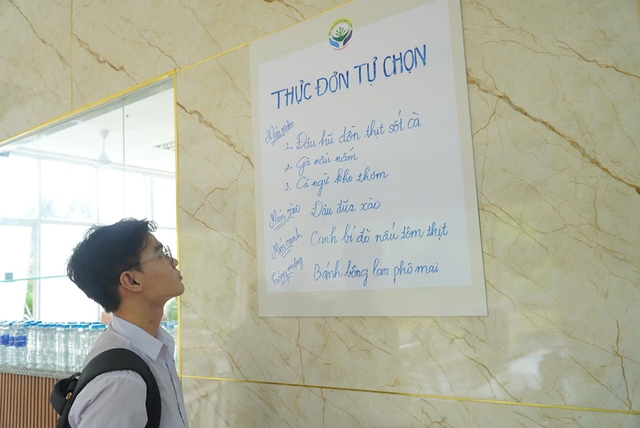 THỰC ĐƠN TỰ CHỌN
Món mặn
1. Đậu hũ dồn thịt sốt cà
2. Gà nấu nấm
3. Cá ngừ kho thơm
Món xào Đậu đũa xào
Món canh Canh bí đỏ nấu tôm thịt
Tráng miệng Bánh bông lan phô mai